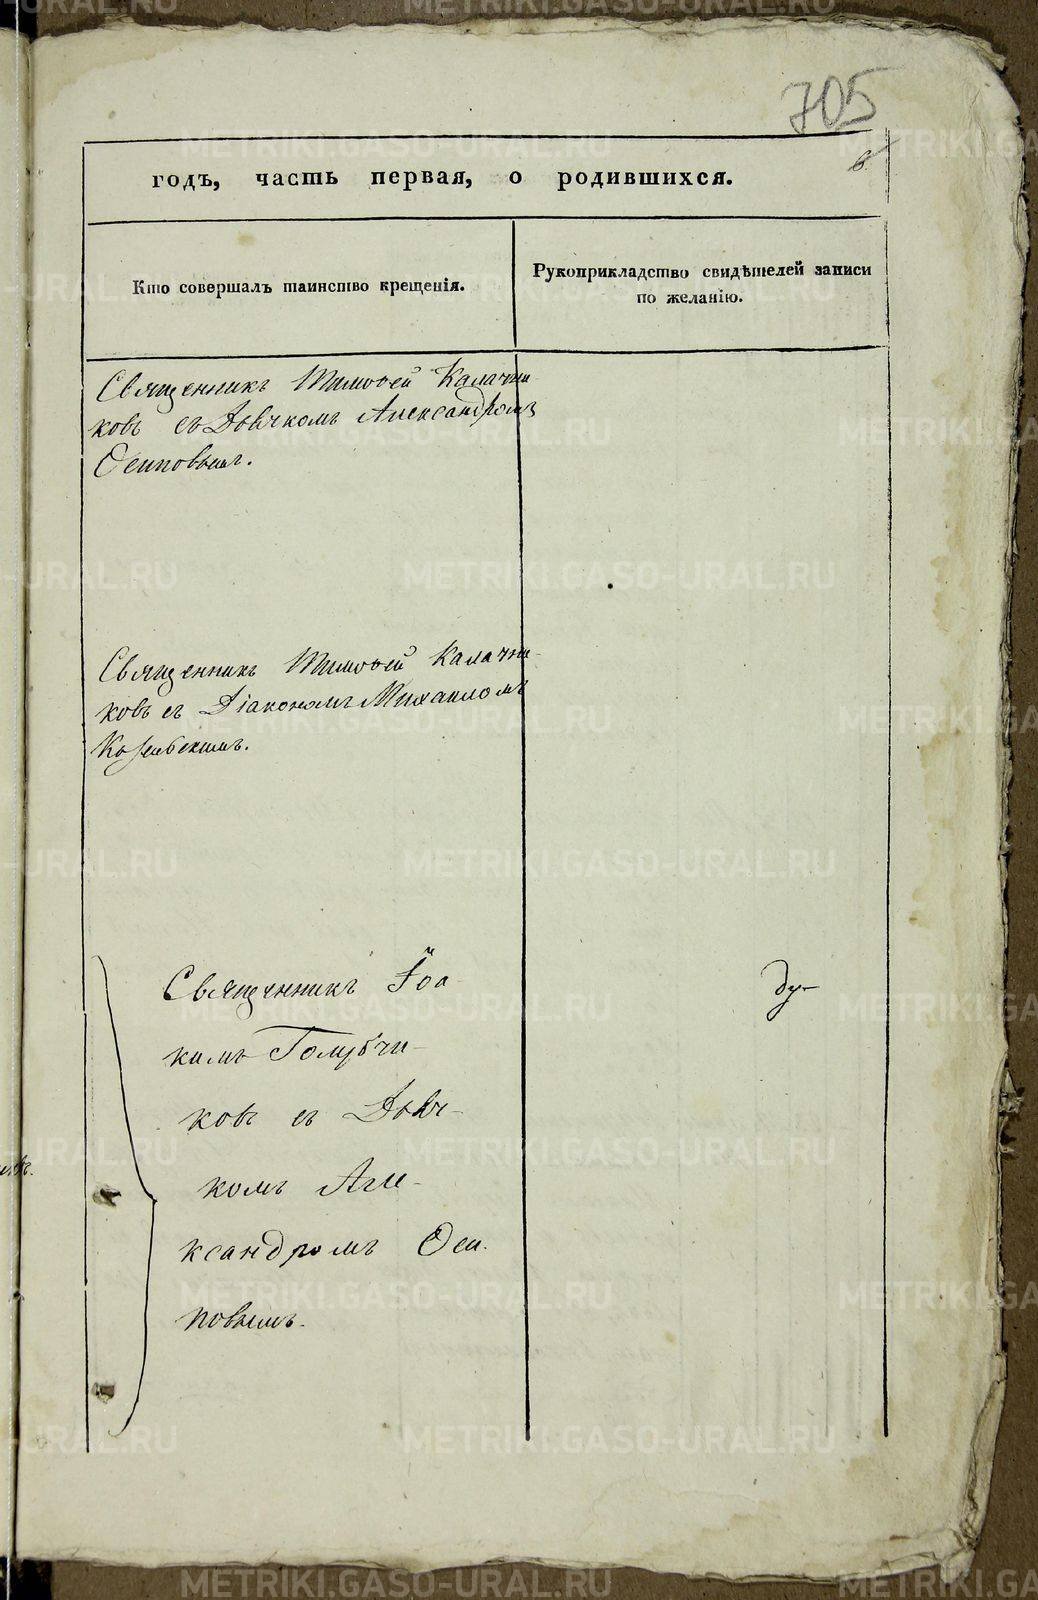 705
6.
годъ, часть первая, о родившихся.
Кто совершалъ таинство крещенія.
Рукоприкладство свидѣтелей записи
по желанію.
Священникъ Тимоѳей Калачни-
ковъ съ Дьячкомъ Александромъ
Осиповымъ.
Священникъ Тимоѳей Калачни-
ковъ съ Діакономъ Михаиломъ
Священникъ Іоа-
кимъ
ковъ съ Дьяч-
комъ Але-
ксандромъ Оси-
повымъ.
METRIKI.GASO-URAL.RU